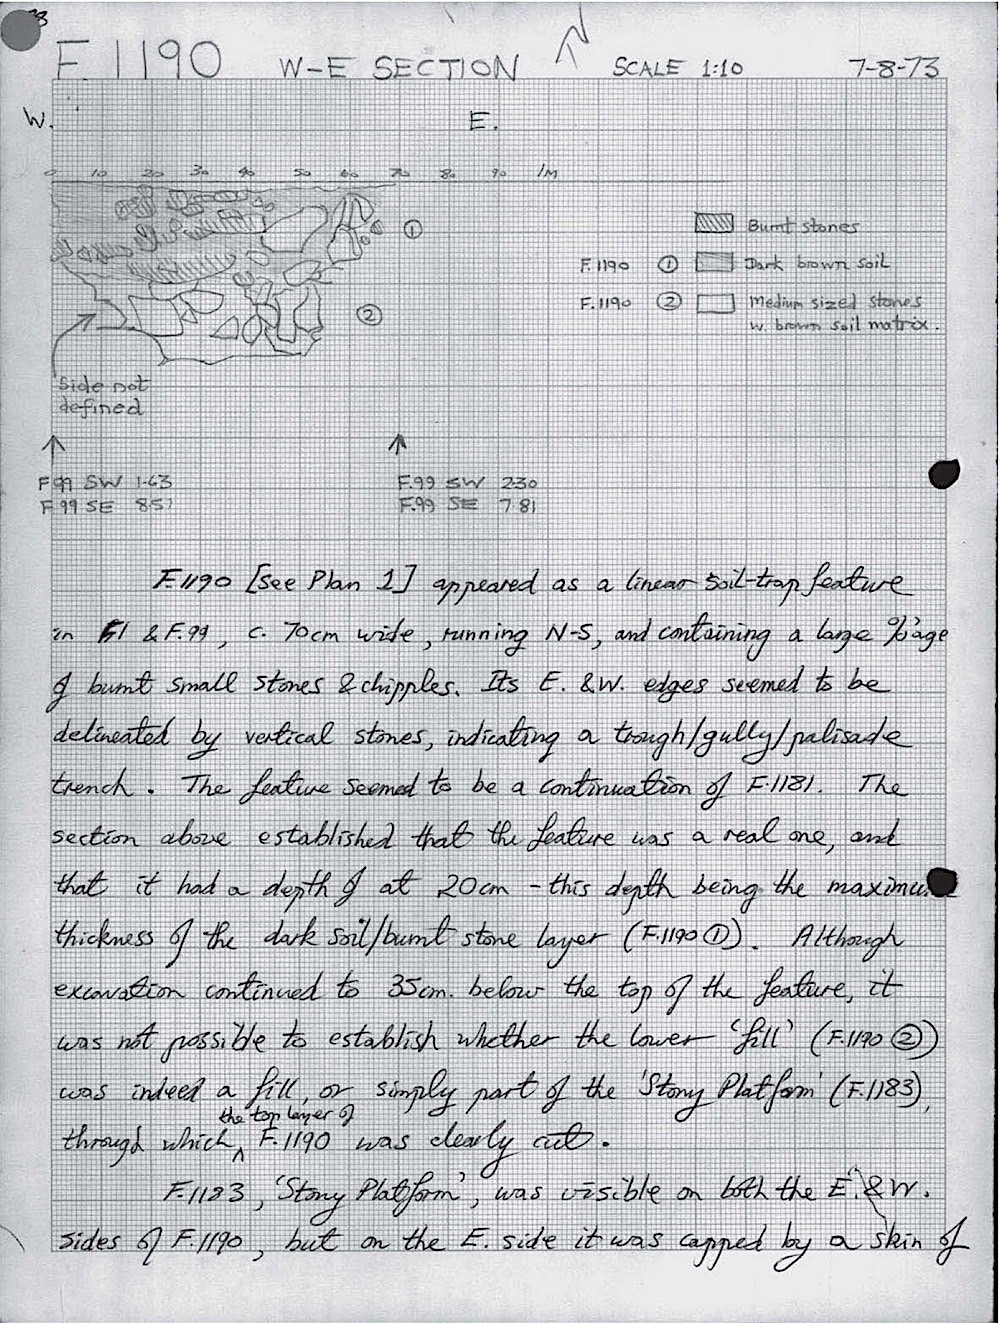 F.1190 W-E SECTION N SCALE 1:10 7-8-73
W. E.
0 10 20 30 40 50 60 70 80 90 1M
① Burnt stones
F.1190 ① Dark brown soil
F.1190 ② Medium sized stones
② w. brown soil matrix.
Side not
defined
F.99 SW 1.63 F.99 SW 2.30
F.99 SE 8.57 F.99 SE 7.81
F.1190 [See Plan 1] appeared as a linear soil-trap feature
in F.1 & F.99, c. 70cm wide, running N-S, and containing a large %'age
of burnt small stones & chipples. Its E. & W. edges seemed to be
delineated by vertical stones, indicating a trough/gully/palisade
trench. The feature seemed to be a continuation of F.1181. The
section above established that the feature was a real one, and
that it had a depth of at 20cm - this depth being the maximum
thickness of the dark soil/burnt stone layer (F.1190 ①). Although
excavation continued to 35cm. below the top of the feature, it
was not possible to establish whether the lower 'fill' (F.1190 ②)
was indeed a fill, or simply part of the 'Stony Platform' (F.1183),
through which ^ the top layer of F.1190 was clearly cut.
F.1183, 'Stony Platform', was visible on both the E. & W.
sides of F.1190, but on the E. side it was capped by a skin of